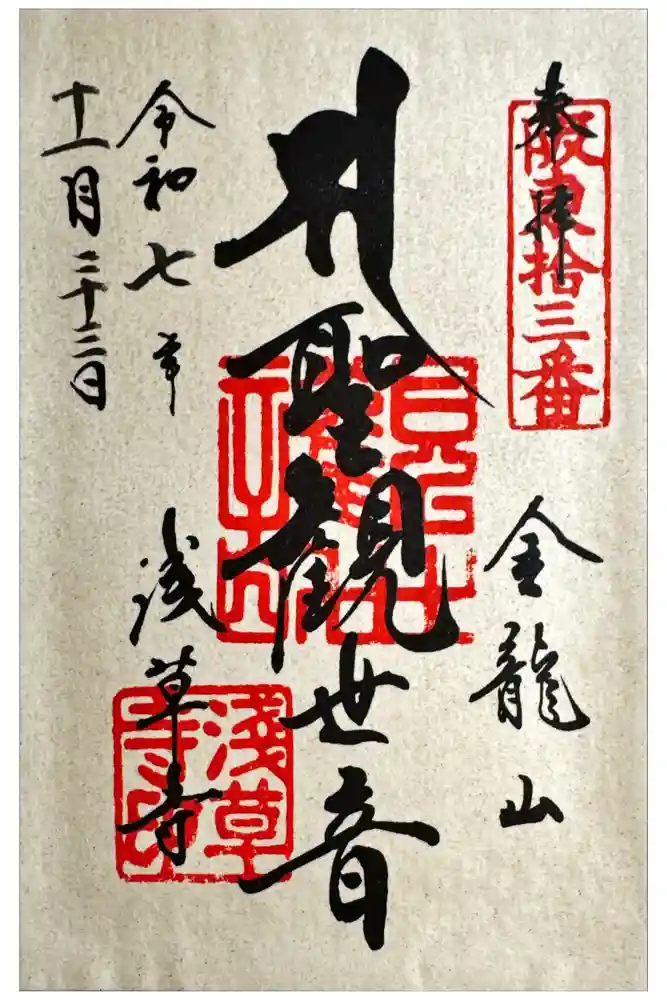 奉拝
阪東拾三番
金龍山
聖観世音
浅草寺
淺草寺印
令和七年
十一月二十三日